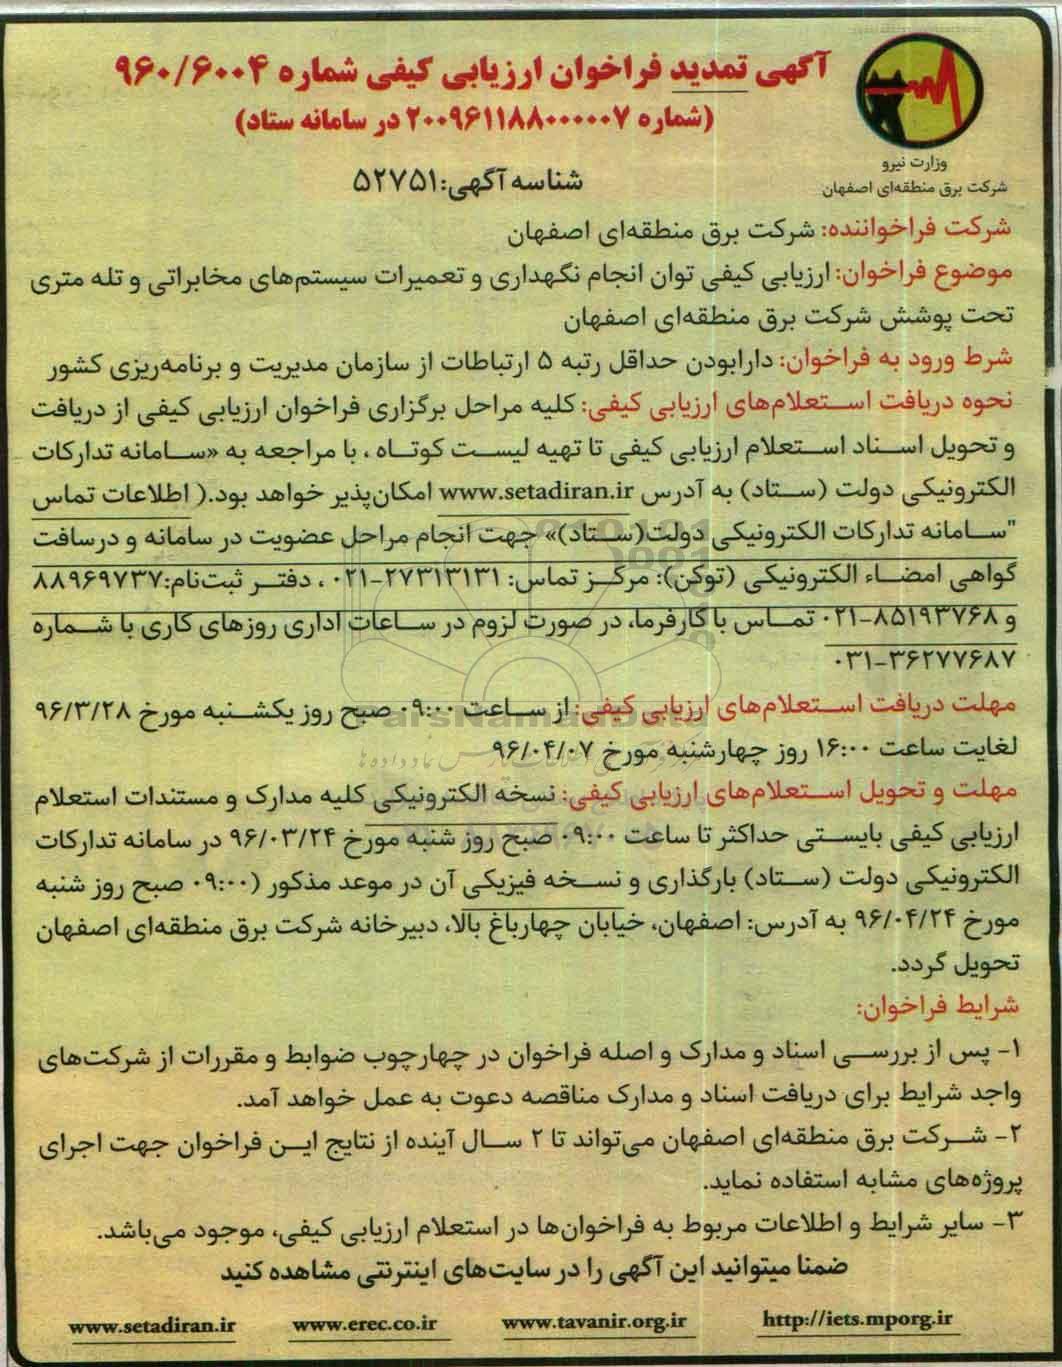 آگهی تمدید فراخوان ارزیابی کیفی شماره ۹۶۰/۶۰۰۴
(شماره ۲۰۰۹۶۱۱۸۸۰۰۰۰۰۷ در سامانه ستاد)
وزارت نیرو
شرکت برق منطقه‌ای اصفهان
شناسه آگهی:۵۲۷۵۱
شرکت فراخواننده: شرکت برق منطقه‌ای اصفهان
موضوع فراخوان: ارزیابی کیفی توان انجام نگهداری و تعمیرات سیستم‌های مخابراتی و تله متری
تحت پوشش شرکت برق منطقه‌ای اصفهان
شرط ورود به فراخوان: دارابودن حداقل رتبه ۵ ارتباطات از سازمان مدیریت و برنامه‌ریزی کشور
نحوه دریافت استعلام‌های ارزیابی کیفی: کلیه مراحل برگزاری فراخوان ارزیابی کیفی از دریافت
و تحویل اسناد استعلام ارزیابی کیفی تا تهیه لیست کوتاه ، با مراجعه به «سامانه تدارکات
الکترونیکی دولت (ستاد) به آدرس www.setadiran.ir امکان‌پذیر خواهد بود.( اطلاعات تماس
"سامانه تدارکات الکترونیکی دولت(ستاد)» جهت انجام مراحل عضویت در سامانه و درسافت
گواهی امضاء الکترونیکی (توکن): مرکز تماس: ۲۷۳۱۳۱۳۱-۰۲۱ ، دفتر ثبت‌نام:۸۸۹۶۹۷۳۷
و ۸۵۱۹۳۷۶۸-۰۲۱ تماس با کارفرما، در صورت لزوم در ساعات اداری روزهای کاری با شماره
۰۳۱-۳۶۲۷۷۶۸۷
مهلت دریافت استعلام‌های ارزیابی کیفی: از ساعت ۰۹:۰۰ صبح روز یکشنبه مورخ ۹۶/۳/۲۸
لغایت ساعت ۱۶:۰۰ روز چهارشنبه مورخ ۹۶/۰۴/۰۷
مهلت و تحویل استعلام‌های ارزیابی کیفی: نسخه الکترونیکی کلیه مدارک و مستندات استعلام
ارزیابی کیفی بایستی حداکثر تا ساعت ۰۹:۰۰ صبح روز شنبه مورخ ۹۶/۰۳/۲۴ در سامانه تدارکات
الکترونیکی دولت (ستاد) بارگذاری و نسخه فیزیکی آن در موعد مذکور (۰۹:۰۰ صبح روز شنبه
مورخ ۹۶/۰۴/۲۴ به آدرس: اصفهان، خیابان چهارباغ بالا، دبیرخانه شرکت برق منطقه‌ای اصفهان
تحویل گردد.
شرایط فراخوان:
۱- پس از بررسی اسناد و مدارک و اصله فراخوان در چهارچوب ضوابط و مقررات از شرکت‌های
واجد شرایط برای دریافت اسناد و مدارک مناقصه دعوت به عمل خواهد آمد.
۲- شرکت برق منطقه‌ای اصفهان می‌تواند تا ۲ سال آینده از نتایج این فراخوان جهت اجرای
پروژه‌های مشابه استفاده نماید.
۳- سایر شرایط و اطلاعات مربوط به فراخوان‌ها در استعلام ارزیابی کیفی، موجود می‌باشد.
ضمنا میتوانید این آگهی را در سایت‌های اینترنتی مشاهده کنید
http://iets.mporg.ir www.tavanir.org.ir www.erec.co.ir www.setadiran.ir